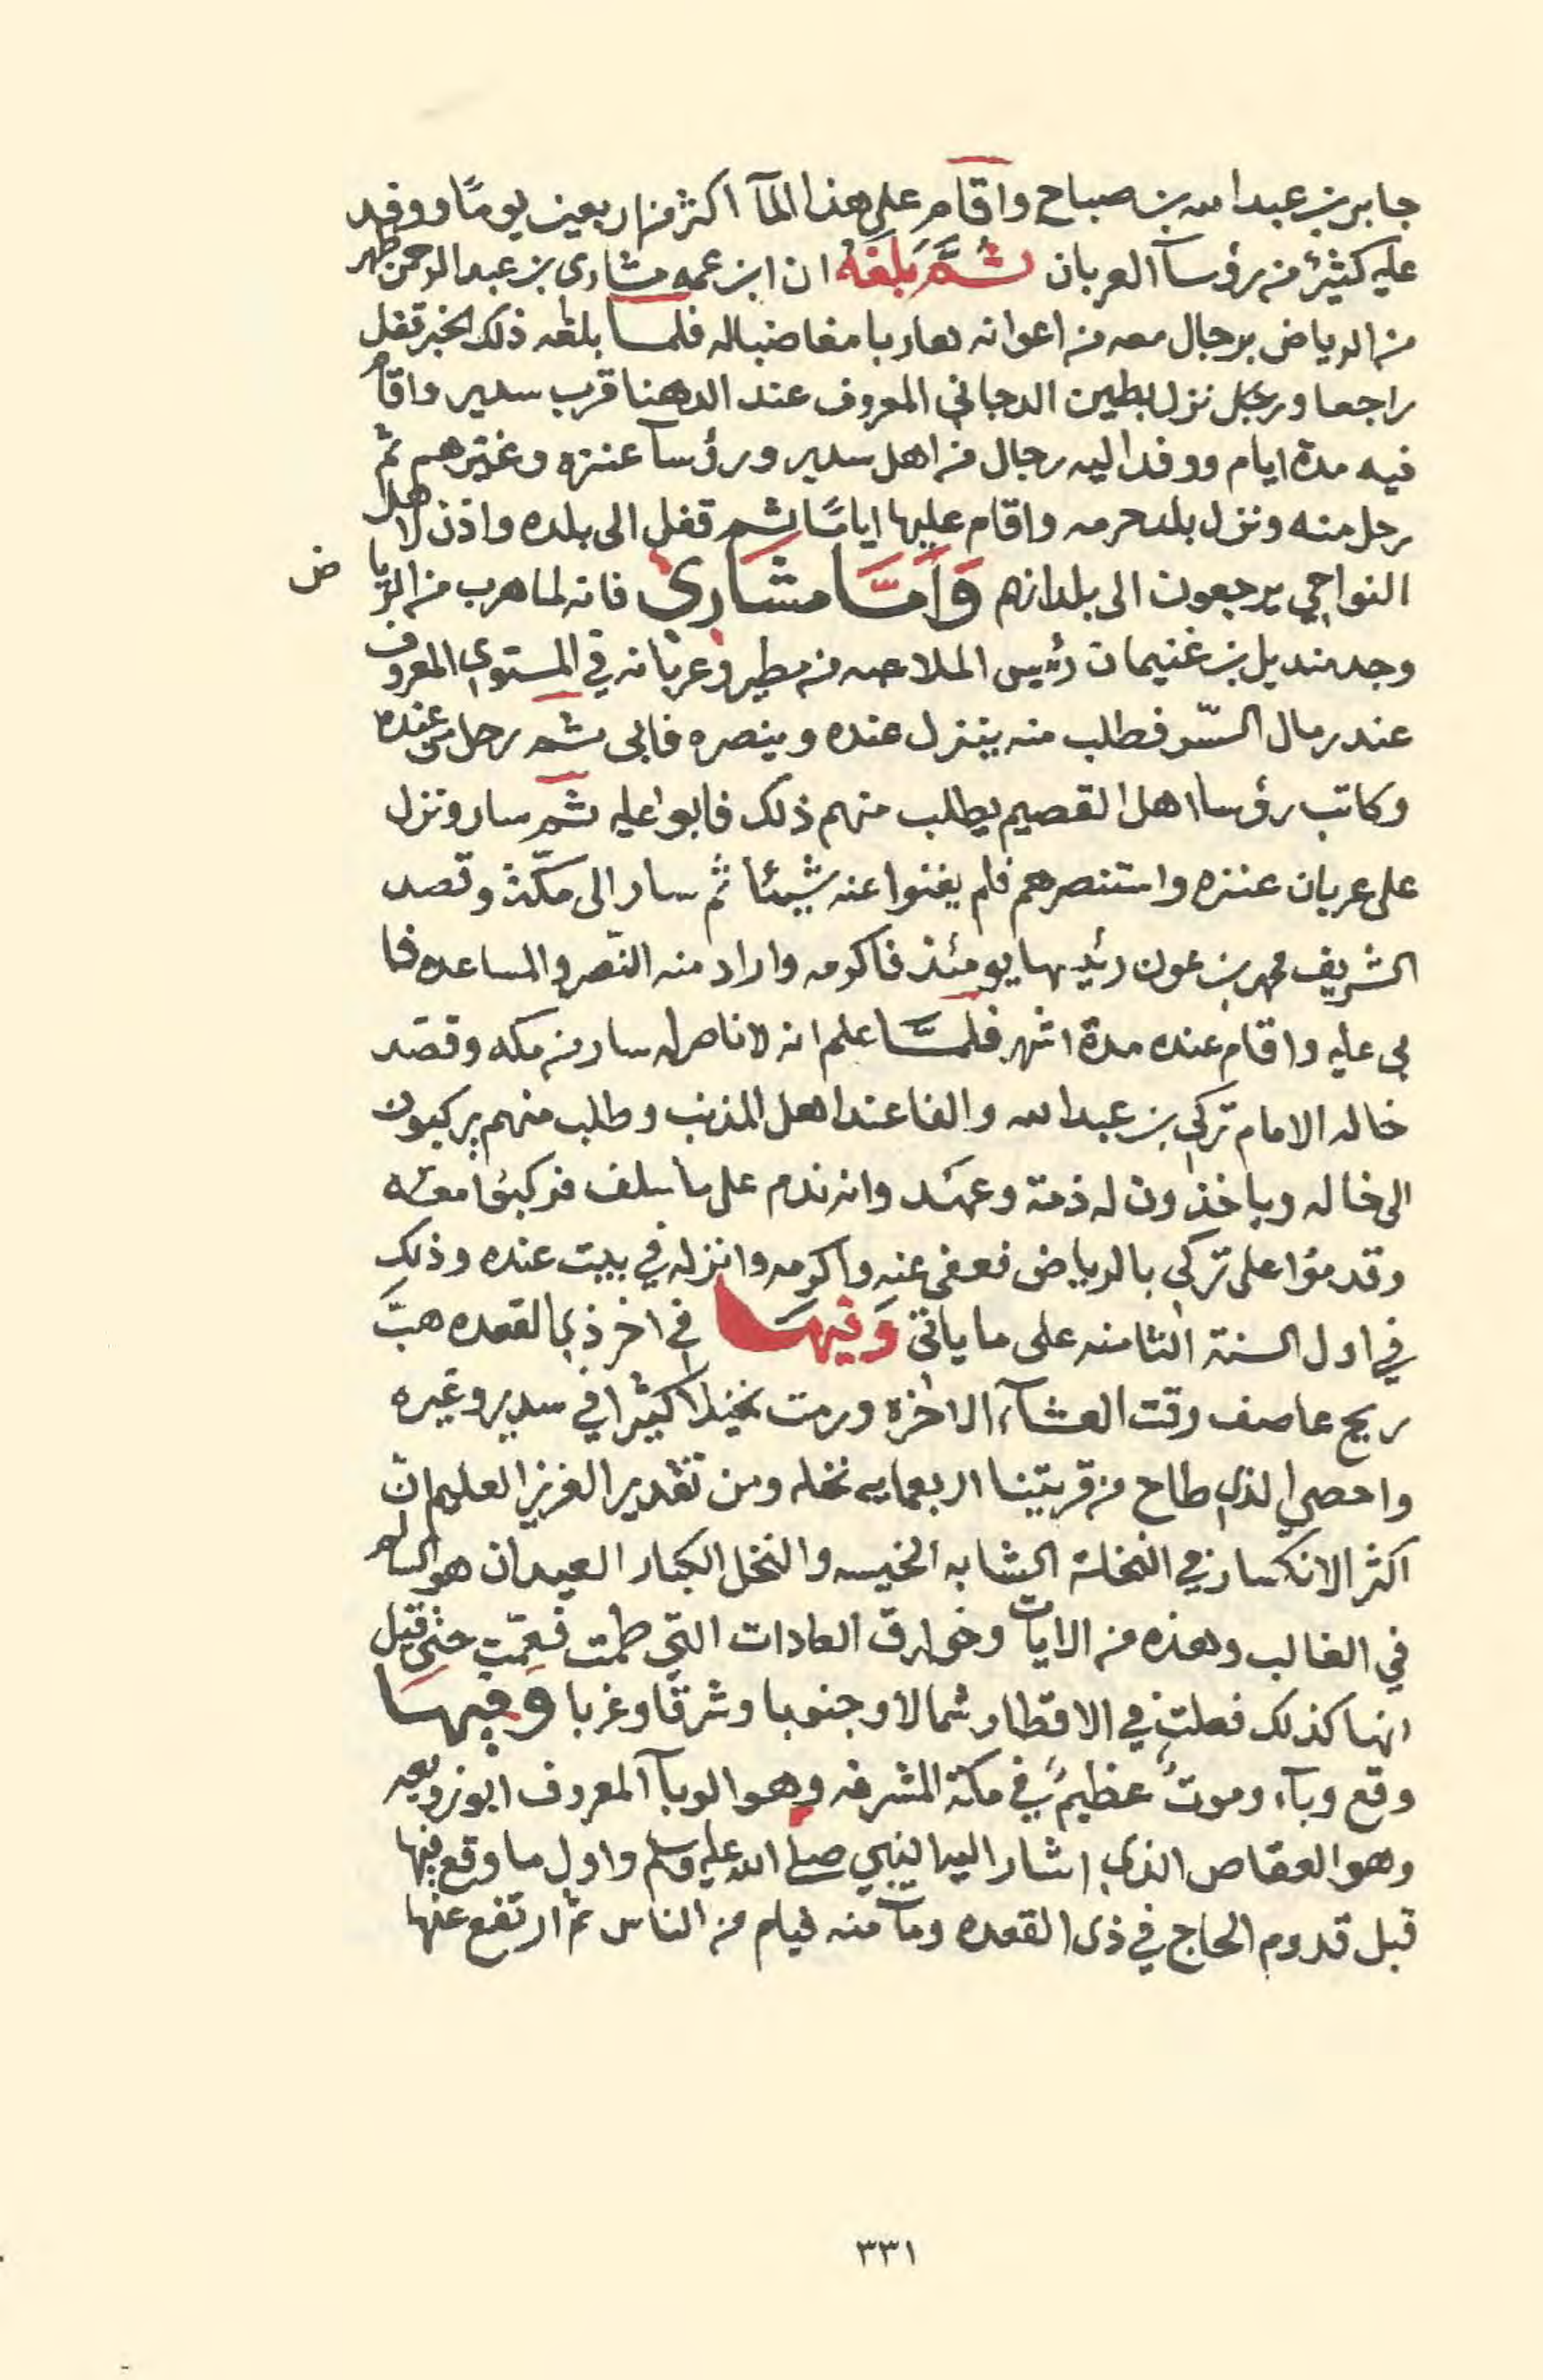 جابر بن عبدالله بن صباح واقام على هذا المآ اكثر من اربعين يومًا ووفد
عليه كثيرٌ من رؤسآ العربان ثُمَّ بَلَغَهُ ان ابن عمه مشارى بن عبدالرحمن ظهر
من الرياض برجال معه من اعوانه هاربا مغاضبا له فلما بلغه ذلك الخبر قفل
راجعا ورحل نزل بطين الدجاني المعروف عند الدهنا قرب سدير واقام
فيه مدة ايام ووفد اليه رجال من اهل سدير ورؤسآ عنزه وغيرهم ثم
رحل منه ونزل بلد حرمه واقام عليها ايامًا ثم قفل الى بلده واذن لاهل
النواحي يرجعون الى بلدانهم وَاَمَّا مشَارِي فانه لما هرب من الريا ض
وجد منديل بن غنيمان رئيس الملاعبه من مطير وعربانه في المستوي المعروف
عند رمال السّر فطلب منه ينزل عنده وينصره فابى ثم رحل من عنده
وكاتب رؤسا اهل القصيم يطلب منهم ذلك فابوا عليه ثم سار ونزل
على عربان عنزه واستنصرهم فلم يغنوا عنه شيئا ثم سار الى مكّة وقصد
الشريف محمد بن عون رئيسها يومئذ فاكرمه واراد منه النّصر والمساعده فا
بى عليه واقام عنده مدة اشهر فلمَّا علم انه لا ناصر له سار من مكه وقصد
خاله الامام تركي بن عبدالله والفا عند اهل المذنب وطلب منهم يركبون
الى خاله وياخذون له ذمة وعهد وانه ندم على ما سلف فركبوا معه
وقدموا على تركي بالرياض فعفى عنه واكرمه وانزله في بيت عنده وذلك
في اول السنة الثامنه على ما ياتي وَفِيهَا في اخر ذي القعده هبَّ
ريح عاصف وقت العشآء الاخره ورمت نخيلا كثيرا في سدير وغيره
واحصي الذي طاح من قريتنا اربعمايه نخله ومن تقدير العزيز العليم ان
اكثر الانكسار في النخلة الشابه الخيسه والنخل الكبار العيدان هو السالم
في الغالب وهذه من الايات وخوارق العادات التي طمت فعمّت حتى قيل
انها كذلك فعلت في الاقطار شمالا وجنوبا وشرقا وغربا وَفِيهَا
وقع وبآء وموتٌ عظيمٌ في مكة المشرفه وهو الوبآ المعروف ابو زويعه
وهو العقاص الذي اشار اليه النبي صلى الله عليه وسلم واول ما وقع فيها
قبل قدوم الحاج في ذى القعده ومآ منه فيام من الناس ثم ارتفع عنها
٣٣١